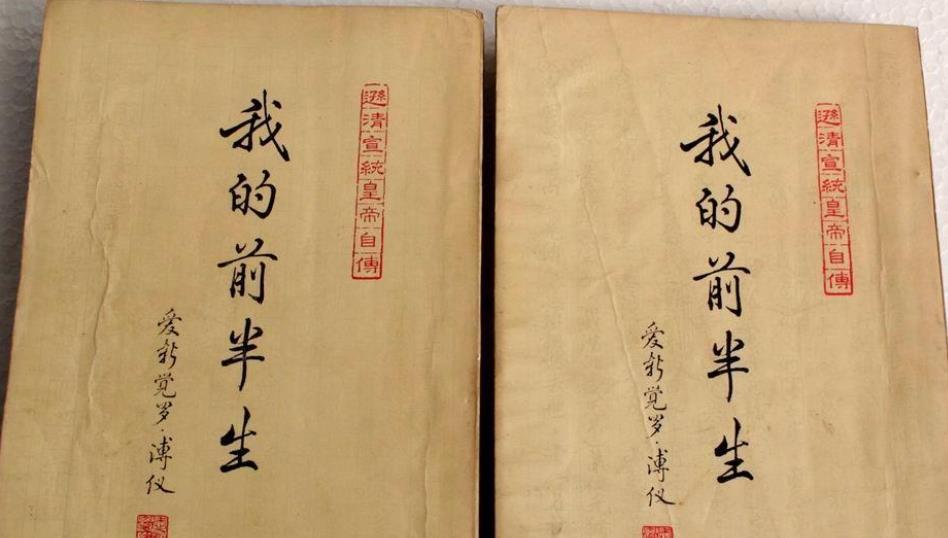 遜清宣統皇帝自傳
我的前半生
爱新觉罗·溥仪
遜清宣統皇帝自傳
我的前半生
爱新觉罗·溥仪